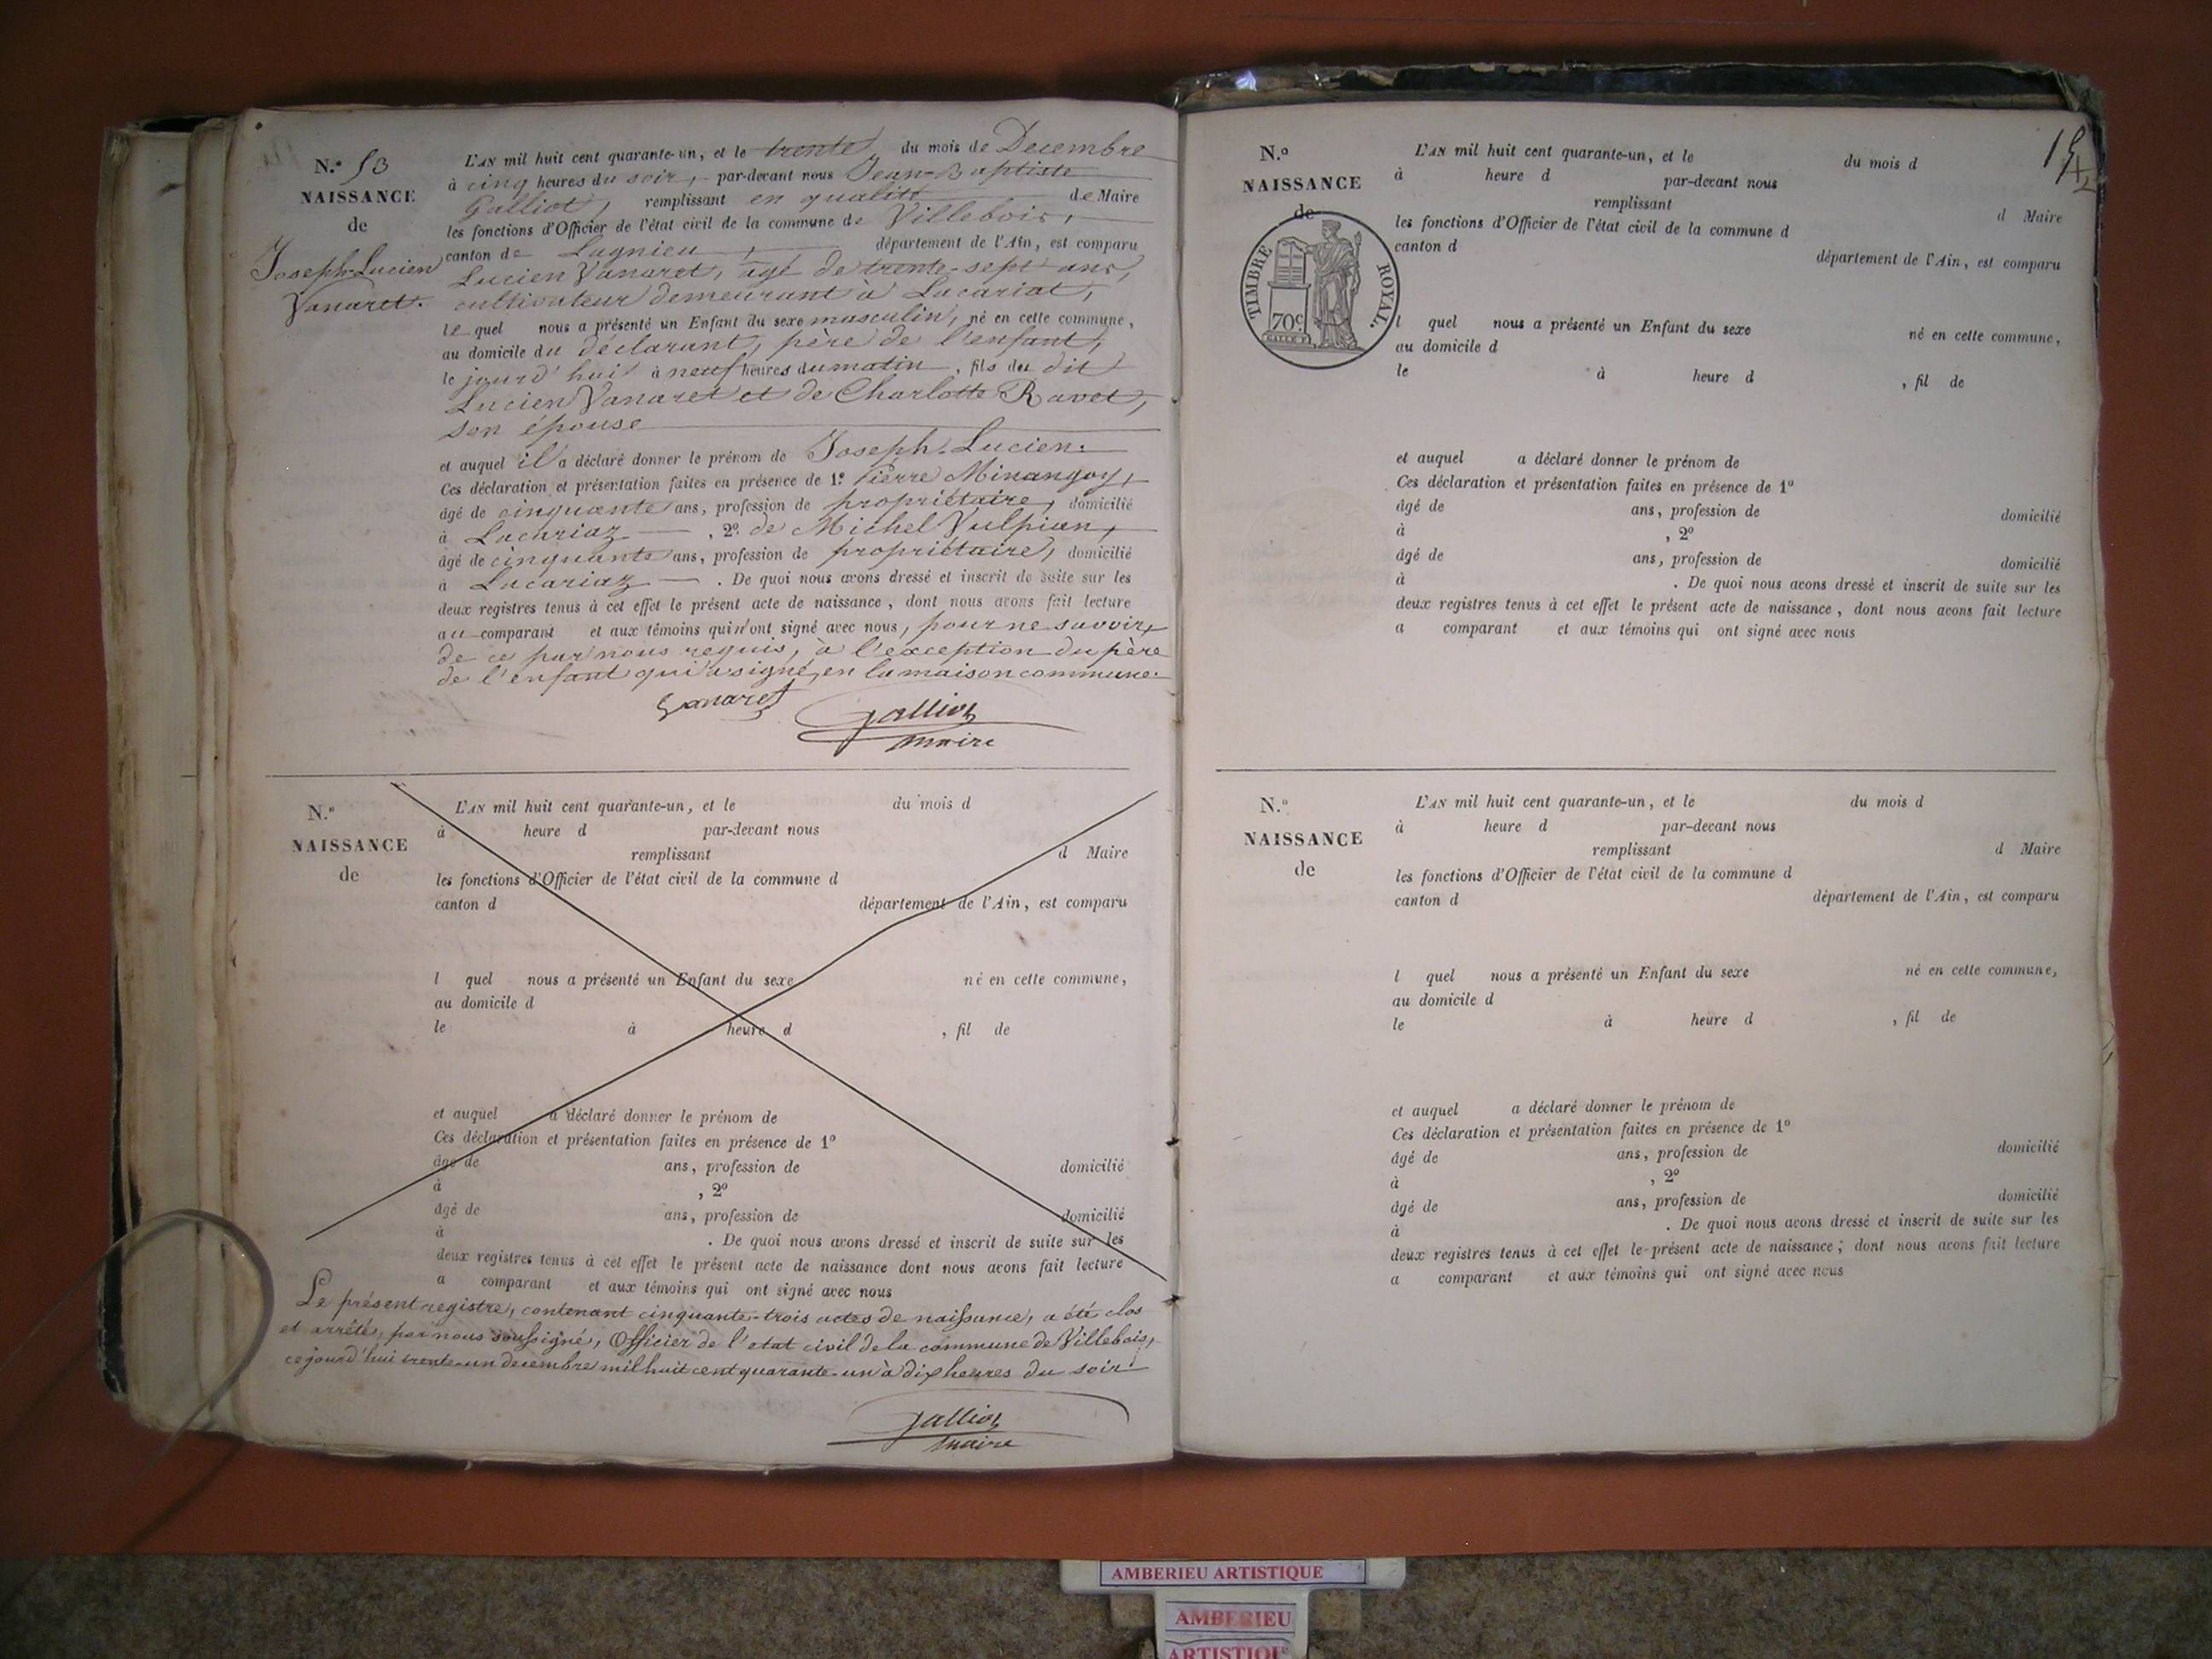 N.° 53
NAISSANCE
de
Joseph-Lucien
Vanaret.
L'AN mil huit cent quarante-un, et le trente du mois de Decembre
à cinq heures du soir, par-devant nous Jean-Baptiste
Galliot, remplissant en qualité de Maire
les fonctions d'Officier de l'état civil de la commune de Villebois,
canton de Lagnieu, département de l'Ain, est comparu
Lucien Vanaret, âgé de trente-sept ans,
cultivateur demeurant à Lacariat,
le quel nous a présenté un Enfant du sexe masculin, né en cette commune,
au domicile du déclarant, père de l'enfant,
le jourd'hui à neuf heures du matin, fils du dit
Lucien Vanaret et de Charlotte Ravet,
son épouse
et auquel il a déclaré donner le prénom de Joseph-Lucien.
Ces déclaration et présentation faites en présence de 1.° Pierre Minangoy,
âgé de cinquante ans, profession de propriétaire, domicilié
à Lacariaz, 2.° de Michel Vulpian,
âgé de cinquante ans, profession de propriétaire, domicilié
à Lacariaz. De quoi nous avons dressé et inscrit de suite sur les
deux registres tenus à cet effet le présent acte de naissance, dont nous avons fait lecture
au comparant et aux témoins qui n'ont signé avec nous, pour ne savoir,
de ce par nous requis, à l'exception du père
de l'enfant qui a signé, en la maison commune.
Vanaret
Galliot
maire
N.°
NAISSANCE
de
L'AN mil huit cent quarante-un, et le du mois d
à heure d par-devant nous
remplissant d Maire
les fonctions d'Officier de l'état civil de la commune d
canton d département de l'Ain, est comparu
l quel nous a présenté un Enfant du sexe né en cette commune,
au domicile d
le à heure d , fil de
et auquel a déclaré donner le prénom de
Ces déclaration et présentation faites en présence de 1°
âgé de ans, profession de domicilié
à , 2°
âgé de ans, profession de domicilié
à . De quoi nous avons dressé et inscrit de suite sur les
deux registres tenus à cet effet le présent acte de naissance dont nous avons fait lecture
a comparant et aux témoins qui ont signé avec nous
Le présent registre, contenant cinquante-trois actes de naissance, a été clos
et arrêté, par nous soussigné, Officier de l'etat civil de la commune de Villebois,
ce jourd'hui trente-un decembre mil huit cent quarante-un à dix heures du soir.
Galliot
maire
15
N.°
NAISSANCE
de
TIMBRE ROYAL.
70c
L'AN mil huit cent quarante-un, et le du mois d
à heure d par-devant nous
remplissant d Maire
les fonctions d'Officier de l'état civil de la commune d
canton d département de l'Ain, est comparu
l quel nous a présenté un Enfant du sexe né en cette commune,
au domicile d
le à heure d , fil de
et auquel a déclaré donner le prénom de
Ces déclaration et présentation faites en présence de 1°
âgé de ans, profession de domicilié
à , 2°
âgé de ans, profession de domicilié
à . De quoi nous avons dressé et inscrit de suite sur les
deux registres tenus à cet effet le présent acte de naissance, dont nous avons fait lecture
a comparant et aux témoins qui ont signé avec nous
N.°
NAISSANCE
de
L'AN mil huit cent quarante-un, et le du mois d
à heure d par-devant nous
remplissant d Maire
les fonctions d'Officier de l'état civil de la commune d
canton d département de l'Ain, est comparu
l quel nous a présenté un Enfant du sexe né en cette commune,
au domicile d
le à heure d , fil de
et auquel a déclaré donner le prénom de
Ces déclaration et présentation faites en présence de 1°
âgé de ans, profession de domicilié
à , 2°
âgé de ans, profession de domicilié
à . De quoi nous avons dressé et inscrit de suite sur les
deux registres tenus à cet effet le présent acte de naissance; dont nous avons fait lecture
a comparant et aux témoins qui ont signé avec nous
AMBERIEU ARTISTIQUE
AMBERIEU